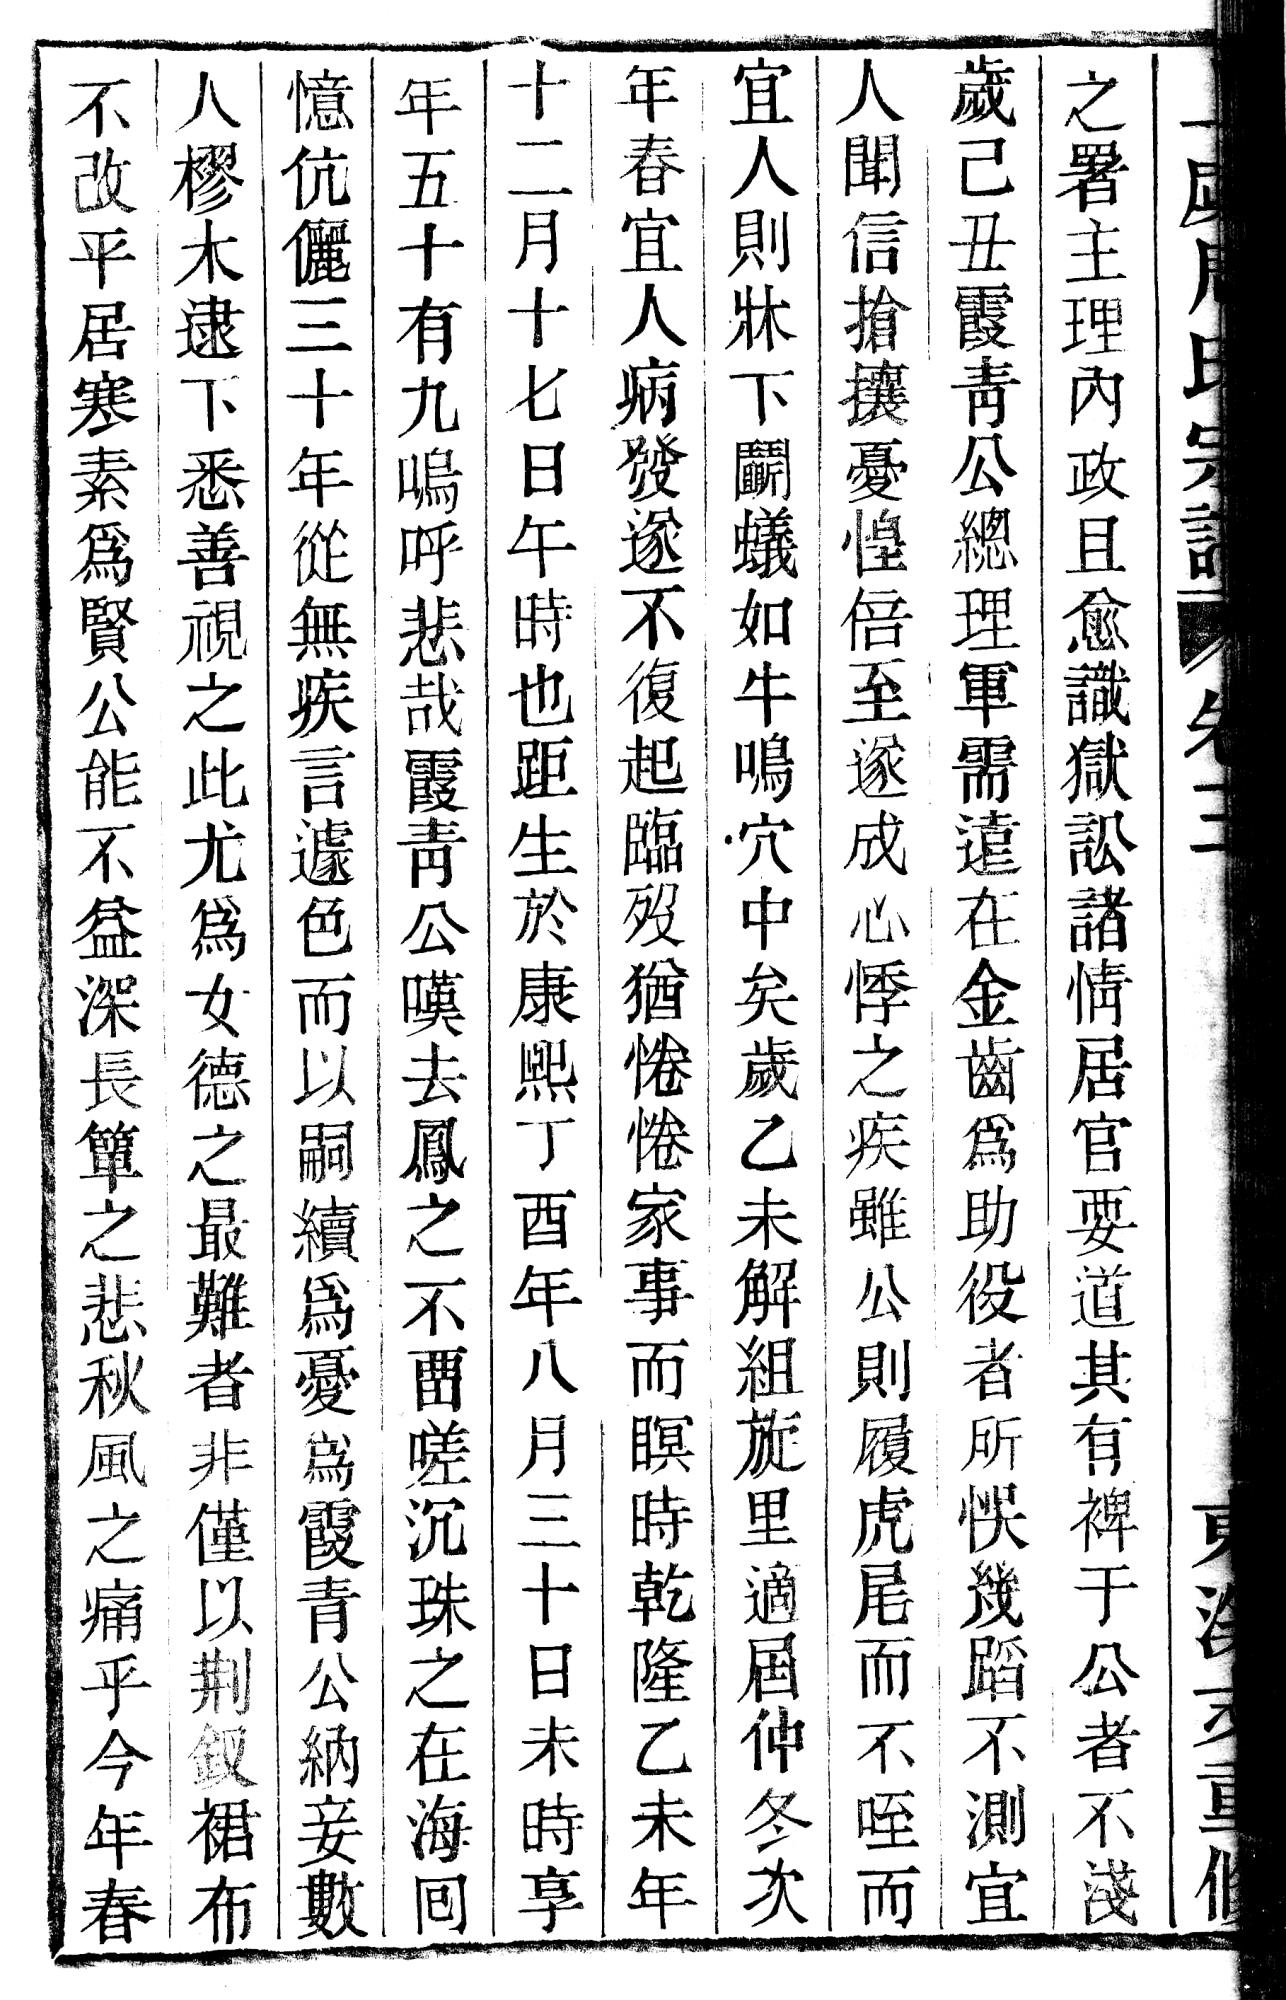 周氏宗譜 卷三
之署主理內政且愈識獄訟諸情居官要道其有裨于公者不淺
歲己丑霞靑公總理軍需遠在金齒爲助役者所悞幾蹈不測宜
人聞信搶攘憂惶倍至遂成心悸之疾雖公則履虎尾而不咥而
宜人則牀下鬭蟻如牛鳴穴中矣歲乙未解組旋里適屆仲冬次
年春宜人病發遂不復起臨歿猶惓惓家事而瞑時乾隆乙未年
十二月十七日午時也距生於康熙丁酉年八月三十日未時享
年五十有九嗚呼悲哉霞靑公嘆去鳳之不畱嗟沉珠之在海回
憶伉儷三十年從無疾言遽色而以嗣續爲憂爲霞青公納妾數
人樛木逮下悉善視之此尤爲女德之最難者非僅以荆釵裙布
不改平居寒素爲賢公能不益深長簟之悲秋風之痛乎今年春